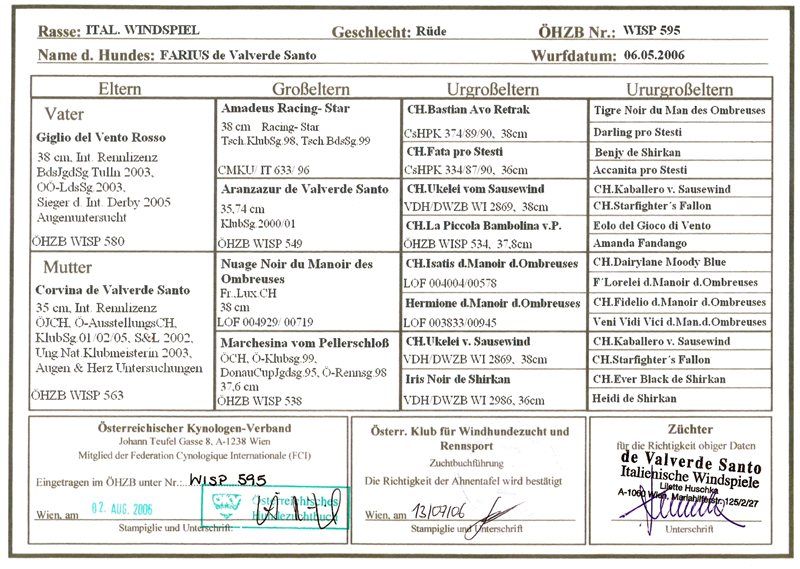 Rasse: ITAL. WINDSPIEL Geschlecht: Rüde ÖHZB Nr.: WISP 595
Name d. Hundes: FARIUS de Valverde Santo Wurfdatum: 06.05.2006
Eltern Großeltern Urgroßeltern Ururgroßeltern
Vater
Giglio del Vento Rosso
38 cm, Int. Rennlizenz
BdsJgdSg Tulln 2003,
OÖ-LdsSg 2003,
Sieger d. Int. Derby 2005
Augenuntersucht
ÖHZB WISP 580
Mutter
Corvina de Valverde Santo
35 cm, Int. Rennlizenz
ÖJCH, Ö-AusstellungsCH,
KlubSg 01/02/05, S&L 2002,
Ung Nat.Klubmeisterin 2003,
Augen & Herz Untersuchungen
ÖHZB WISP 563
Amadeus Racing- Star
38 cm Racing- Star
Tsch.KlubSg.98, Tsch.BdsSg.99
CMKU/ IT 633/ 96
Aranzazur de Valverde Santo
35,74 cm
KlubSg.2000/01
ÖHZB WISP 549
Nuage Noir du Manoir des
Ombreuses
Fr.,Lux.CH
38 cm
LOF 004929/ 00719
Marchesina vom Pellerschloß
ÖCH, Ö-Klubsg.99,
DonauCupJgdsg.95, Ö-Rennsg.98
37.6 cm
ÖHZB WISP 538
CH.Bastian Avo Retrak
CsHPK 374/89/90, 38cm
CH.Fata pro Stesti
CsHPK 334/87/90, 36cm
CH.Ukelei vom Sausewind
VDH/DWZB WI 2869, 38cm
CH.La Piccola Bambolina v.P.
ÖHZB WISP 534, 37,8cm
CH.Isatis d.Manoir d.Ombreuses
LOF 004004/00578
Hermione d.Manoir d.Ombreuses
LOF 003833/00945
CH.Ukelei v. Sausewind
VDH/DWZB WI 2869, 38cm
Iris Noir de Shirkan
VDH/DWZB WI 2986, 36cm
Tigre Noir du Man des Ombreuses
Darling pro Stesti
Benjy de Shirkan
Accanita pro Stesti
CH.Kaballero v. Sausewind
CH.Starfighter´s Fallon
Eolo del Gioco di Vento
Amanda Fandango
CH.Dairylane Moody Blue
F´Lorelei d.Manoir d.Ombreuses
CH.Fidelio d.Manoir d.Ombreuses
Veni Vidi Vici d.Man.d.Ombreuses
CH.Kaballero v. Sausewind
CH.Starfighter´s Fallon
CH.Ever Black de Shirkan
Heidi de Shirkan
Österreichischer Kynologen-Verband
Johann Teufel Gasse 8, A-1238 Wien
Mitglied der Federation Cynologique Internationale (FCI)
Eingetragen im ÖHZB unter Nr.: WISP 595
Österreichisches
Hundezuchtbuch
Wien, am 02. AUG. 2006
Stampiglie und Unterschrift:
Österr. Klub für Windhundezucht und
Rennsport
Zuchtbuchführung
Die Richtigkeit der Ahnentafel wird bestätigt
Wien, am 13/07/06
Stampiglie und Unterschrift
Züchter
für die Richtigkeit obiger Daten
de Valverde Santo
Italienische Windspiele
Lilette Huschka
A-1060 Wien, Mariahilferstr. 125/2/27
Unterschrift